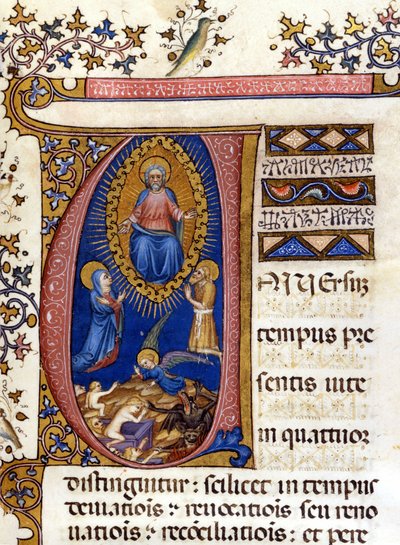 UNIVersuz
tempus pre
sentis uite
in quattuor
distinguitur : scilicet in tempus
deuiatiōis : reuocatiōis seu reno
uatiōis : recōciliatiōis : et pere